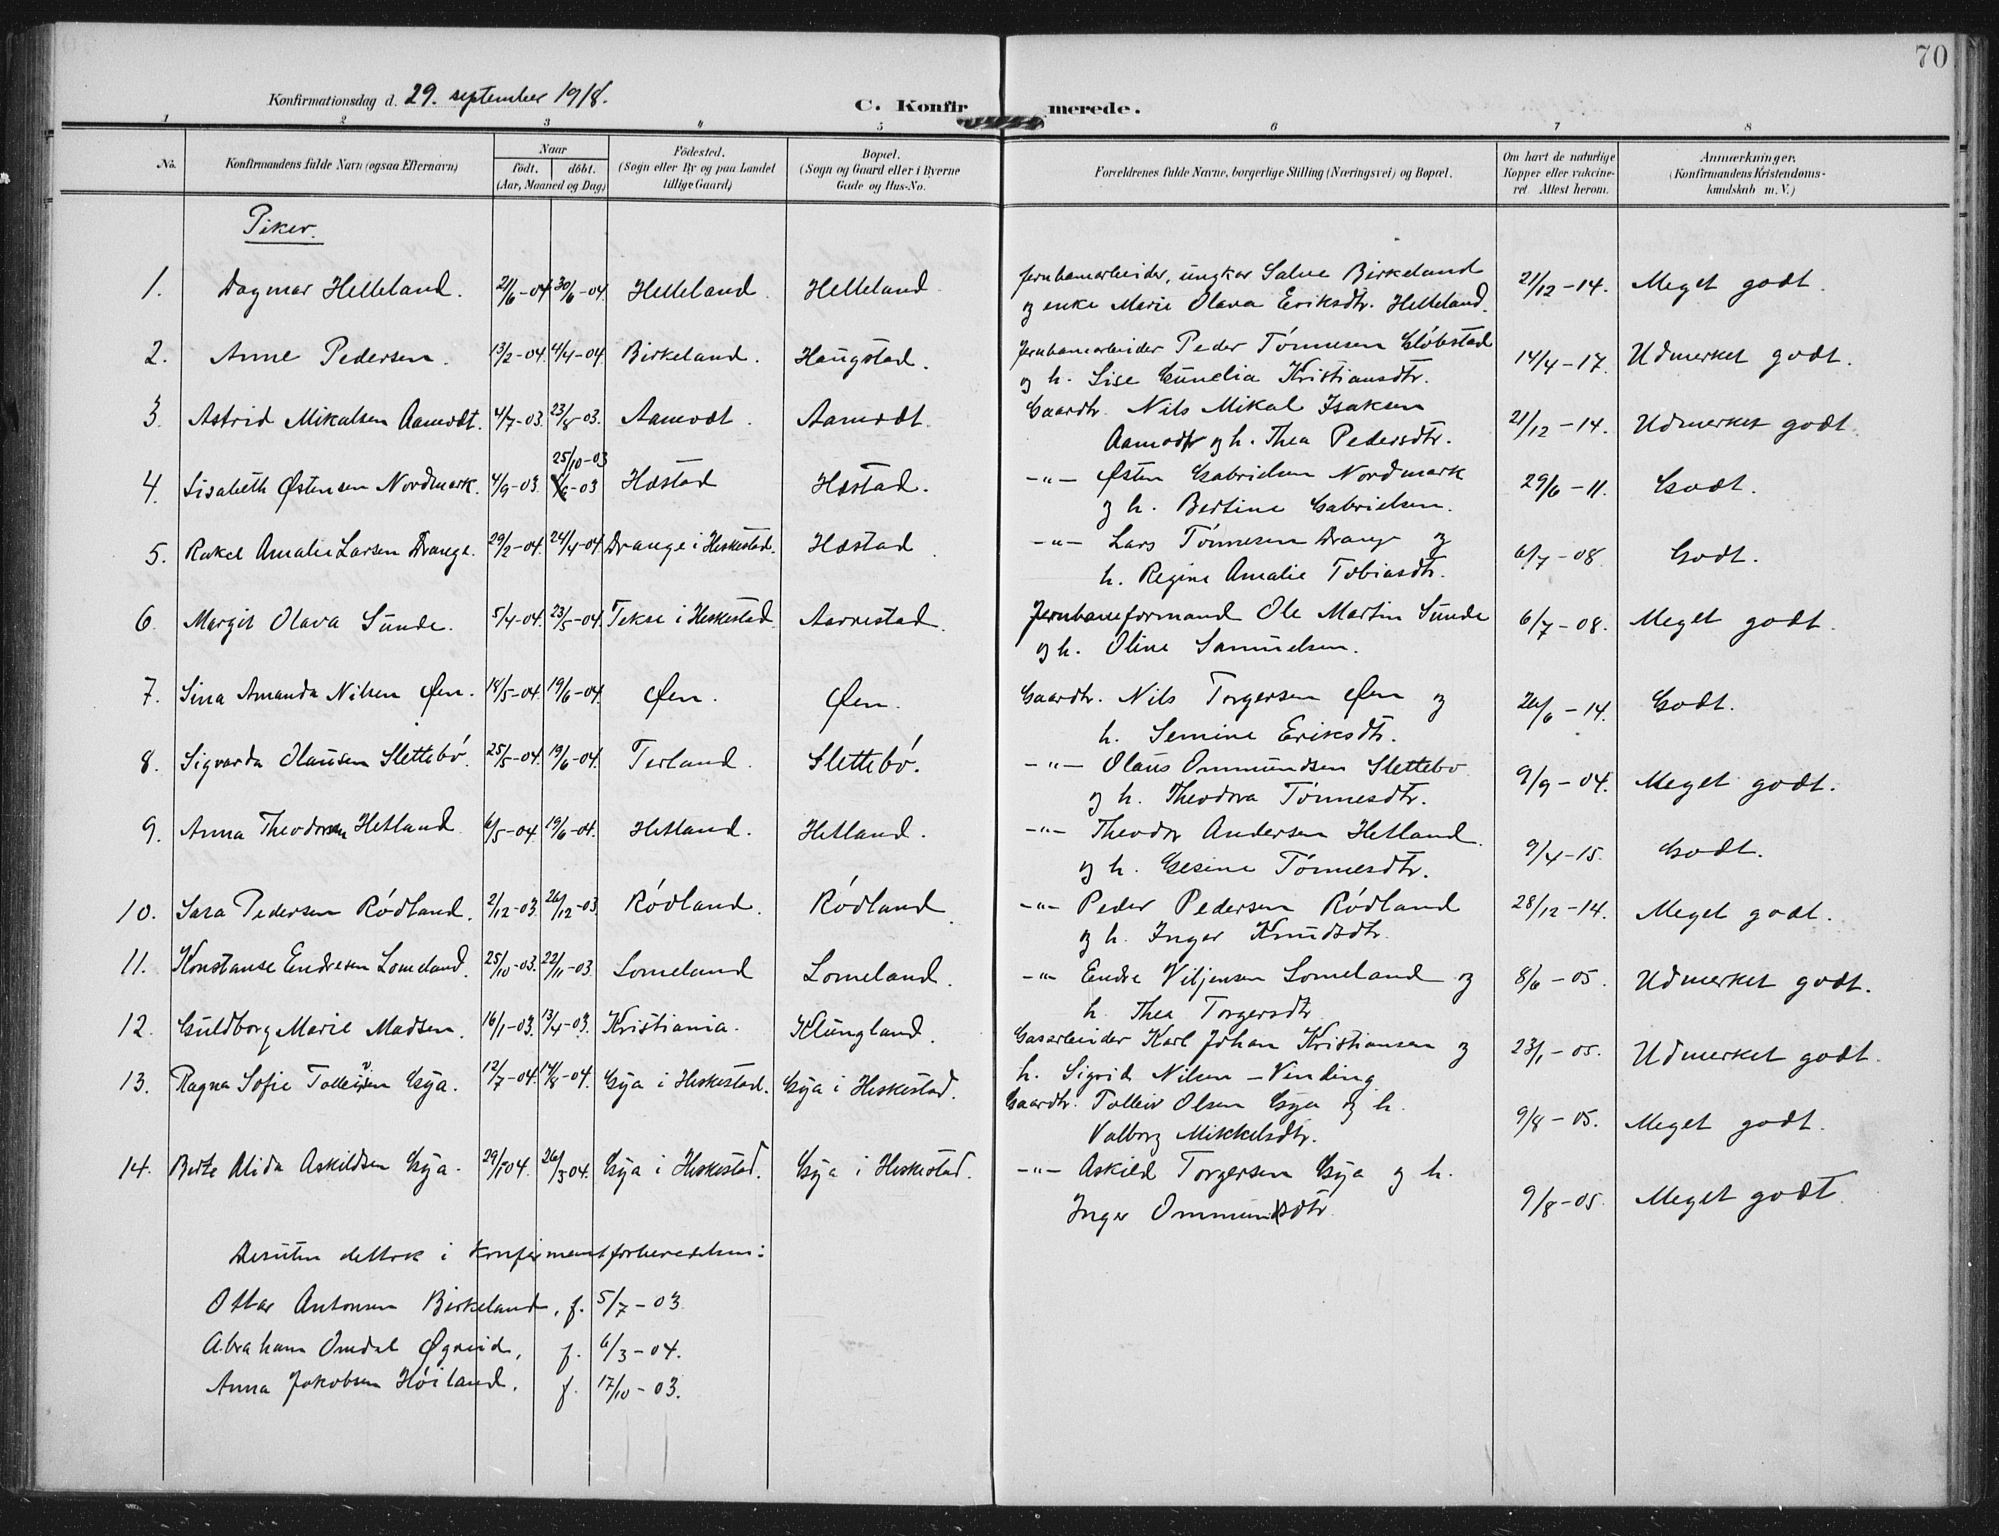 70
Konfirmationsdag d. 29. september 1918.
C. Konfirmerede.
1 2 3 4 5 6 7 8
No. Konfirmandens fulde Navn (ogsaa Efternavn) Naar født. døbt. (Aar, Maaned og Dag) Fødested. (Sogn eller By og paa Landet tillige Gaard) Bopæl. (Sogn og Gaard eller i Byerne Gade og Hus-No. Forældrenes fulde Navne, borgerlige Stilling (Næringsvei) og Bopæl. Om havt de naturlige Kopper eller vakcineret. Attest herom. Anmærkninger. (Konfirmandens Kristendomskundskab m. V.)
Piker.
1. Dagmar Helleland. 21/6-04 30/6-04. Helleland. Helleland. Jernbanearbeider, ungkar Salve Birkeland 21/12-14. Meget godt.
og enke Marie Olava Eriksdtr. Helleland.
2. Anne Pedersen. 13/2-04. 4/4-04. Birkeland. Haugstad. Jernbanearbeider Peder Tønnesen Gløbstad 14/4-17. Udmerket godt.
og h. Lise Gunelia Kristiansdtr.
3. Astrid Mikalsen Aamodt. 4/7-03. 23/8-03. Aamodt. Aamodt. Gaardbr. Nils Mikal Isaksen 21/12-14. Udmerket godt.
Aamodt og h. Thea Pedersdtr.
25/10-03
4. Lisabeth Østensen Nordmark. 4/9-03. /9-03 Hæstad Hæstad. -"- Østen Gabrielsen Nordmark 29/6-11. Godt.
og h. Bertine Gabrielsen.
5. Rakel Amalie Larsen Drange. 29/2-04. 24/4-04. Drange i Heskestad. Hæstad. -"- Lars Tønnesen Drange og 6/7-08. Godt.
h. Regine Amalie Tobiasdtr.
6. Margit Olava Sunde. 5/4-04. 23/5-04. Tekse i Heskestad. Aarrestad. Jernbaneformand Ole Martin Sunde 6/7-08. Meget godt.
og h. Oline Samuelsen.
7. Sina Amanda Nilsen Øen. 18/5-04. 19/6-04. Øen. Øen. Gaardbr. Nils Torgersen Øen og 26/6-14. Godt.
h. Semine Eriksdtr.
8. Sigvarda Olausen Slettebø. 25/5-04. 19/6-04. Terland. Slettebø. -"- Olaus Ommundsen Slettebø 9/9-04. Meget godt.
og h. Theodora Tønnesdtr.
9. Anna Theodorsen Hetland. 6/5-04. 19/6-04. Hetland. Hetland. -"- Theodor Andersen Hetland. 9/4-15. Godt.
og h. Gesine Tønnesdtr.
10. Sara Pedersen Rødland. 2/12-03. 26/12-03. Rødland. Rødland. -"- Peder Pedersen Rødland 28/12-14. Meget godt.
og h. Inger Knudsdtr.
11. Konstanse Endresen Lomeland. 25/10-03. 22/11-03. Lomeland Lomeland. -"- Endre Viljensen Lomeland og 8/6-05. Udmerket godt.
h. Thea Torgersdtr
12. Guldborg Marie Madsen. 16/1-03. 13/4-03. Kristiania. Klungland. Gasarbeider Karl Johan Kristiansen og 23/1-05. Udmerket godt.
h. Sigrid Nilsen - Vending.
13. Ragna Sofie Tolleivsen Gya. 12/7-04. 14/8-04. Gya i Heskestad. Gya i Heskestad. Gaardbr. Tolleiv Olsen Gya og h. 9/8-05. Meget godt.
Valborg Mikkelsdtr.
14. Berte Alida Askildsen Gya. 29/1 04. 26/3 04. Gya i Heskestad. Gya i Heskestad. -"- Askild Torgersen Gya og h. 9/8-05. Meget godt.
Inger Ommundsdtr.
Desuten deltok i konfirmantforberedelsen:
Ottar Antonsen Birkeland, f. 5/7-03.
Abraham Omdal Øgreid, f. 6/3-04.
Anna Jakobsen Høiland. f. 17/10-03.